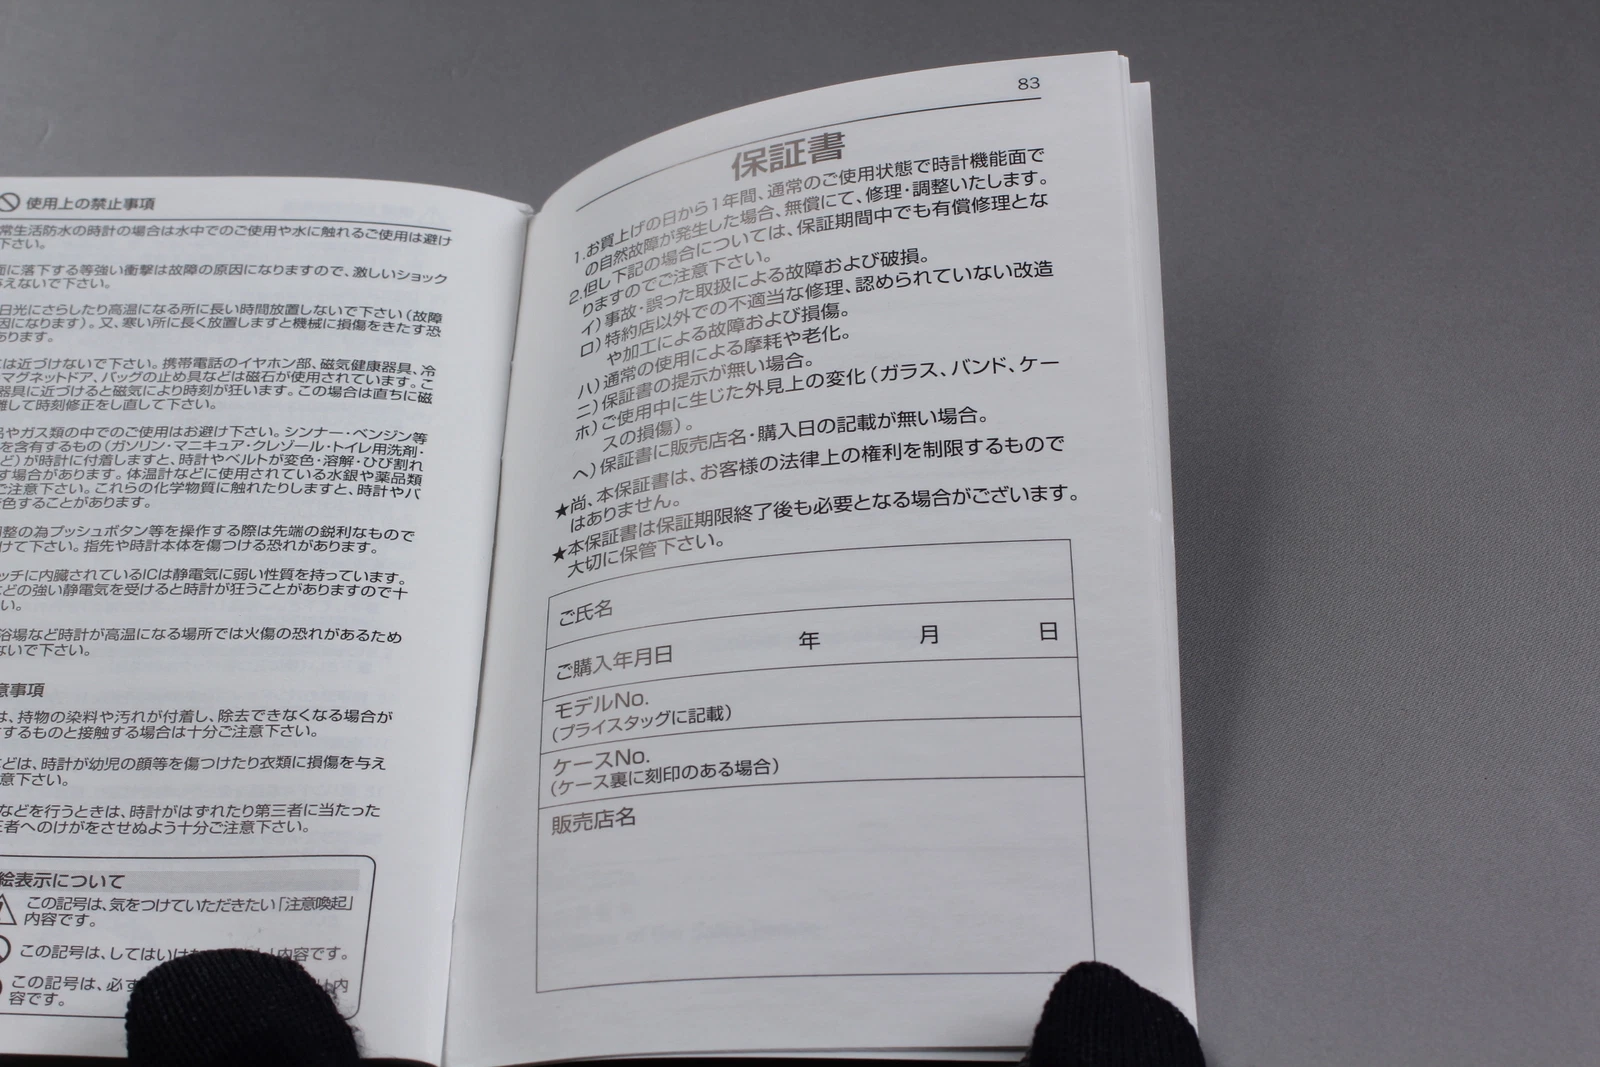 使用上の禁止事項
常生活防水の時計の場合は水中でのご使用や水に触れるご使用は避け
下さい。
面に落下する等強い衝撃は故障の原因になりますので、激しいショック
えないで下さい。
日光にさらしたり高温になる所に長い時間放置しないで下さい(故障
因になります)。又、寒い所に長く放置しますと機械に損傷をきたす恐
あります。
には近づけないで下さい。携帯電話のイヤホン部、磁気健康器具、冷
マグネットドア、バッグの止め具などは磁石が使用されています。こ
器具に近づけると磁気により時刻が狂います。この場合は直ちに磁
離して時刻修正をし直して下さい。
品やガス類の中でのご使用はお避け下さい。シンナー・ベンジン等
を含有するもの(ガソリン・マニキュア・クレゾール・トイレ用洗剤・
ど)が時計に付着しますと、時計やベルトが変色・溶解・ひび割れ
す場合があります。体温計などに使用されている水銀や薬品類
ご注意下さい。これらの化学物質に触れたりしますと、時計やバ
色することがあります。
調整の為プッシュボタン等を操作する際は先端の鋭利なもので
けて下さい。指先や時計本体を傷つける恐れがあります。
ッチに内臓されているICは静電気に弱い性質を持っています。
などの強い静電気を受けると時計が狂うことがありますので十
い。
浴場など時計が高温になる場所では火傷の恐れがあるため
ないで下さい。
意事項
は、持物の染料や汚れが付着し、除去できなくなる場合が
するものと接触する場合は十分ご注意下さい。
どは、時計が幼児の顔等を傷つけたり衣類に損傷を与え
意下さい。
などを行うときは、時計がはずれたり第三者に当たった
三者へのけがをさせぬよう十分ご注意下さい。
絵表示について
この記号は、気をつけていただきたい「注意喚起」
内容です。
この記号は、してはいけ 内容です。
この記号は、必ず 内
容です。
83
保証書
1.お買上げの日から1年間、通常のご使用状態で時計機能面で
の自然故障が発生した場合、無償にて、修理・調整いたします。
2.但し下記の場合については、保証期間中でも有償修理とな
りますのでご注意下さい。
イ)事故・誤った取扱による故障および破損。
ロ)特約店以外での不適当な修理、認められていない改造
や加工による故障および損傷。
ハ)通常の使用による摩耗や老化。
ニ)保証書の提示が無い場合。
ホ)ご使用中に生じた外見上の変化(ガラス、バンド、ケー
スの損傷)。
ヘ)保証書に販売店名・購入日の記載が無い場合。
★尚、本保証書は、お客様の法律上の権利を制限するもので
はありません。
★本保証書は保証期限終了後も必要となる場合がございます。
大切に保管下さい。
ご氏名
ご購入年月日 年 月 日
モデルNo.
(プライスタッグに記載)
ケースNo.
(ケース裏に刻印のある場合)
販売店名